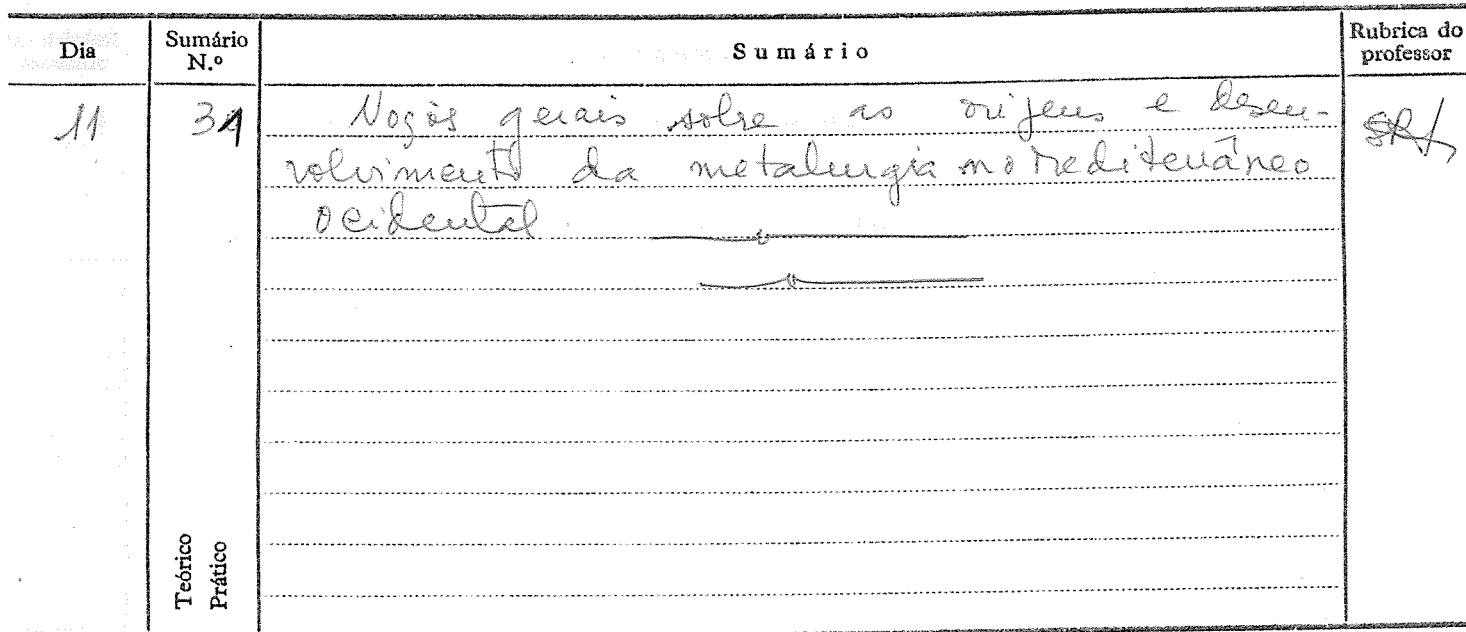 Dia
Sumário N.º
Sumário
Rubrica do professor
11
31
Noções gerais sobre as origens e desen-
volvimento da metalurgia no Mediterrâneo
Ocidental
Teórico
Prático